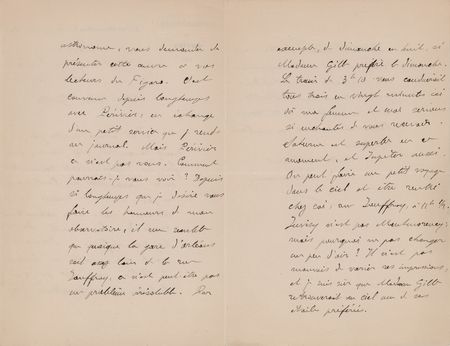 astronome, vous demander de
présenter cette œuvre à vos
lecteurs du Figaro. C'est
convenu depuis longtemps
avec Périvier, en échange
d'un petit service que je rends
au journal. Mais Périvier
ce n'est pas vous. Comment
pourrais-je vous voir ? Depuis
si longtemps que je désire vous
faire les honneurs de mon
observatoire, il me semble
que quoique la gare d'Orléans
soit assez loin de la rue
Jouffroy, ce n'est peut-être pas
un problème insoluble. Par
exemple, de dimanche en huit, si
Madame Gille préfère le dimanche.
Le train de 3h10 vous conduirait
tous trois en vingt minutes ici
où ma femme et moi serions
si enchantés de vous recevoir.
Saturne est superbe en ce
moment, et Jupiter aussi.
On peut faire un petit voyage
dans le ciel et être rentré
chez soi, rue Jouffroy, à 11h 1/2.
Juvisy n'est pas Montmorency ;
mais pourquoi ne pas changer
un peu d'air ? Il n'est pas
mauvais de varier ses impressions,
et je suis sûr que Madame Gille
retrouverait au ciel une de ses
étoiles préférées.